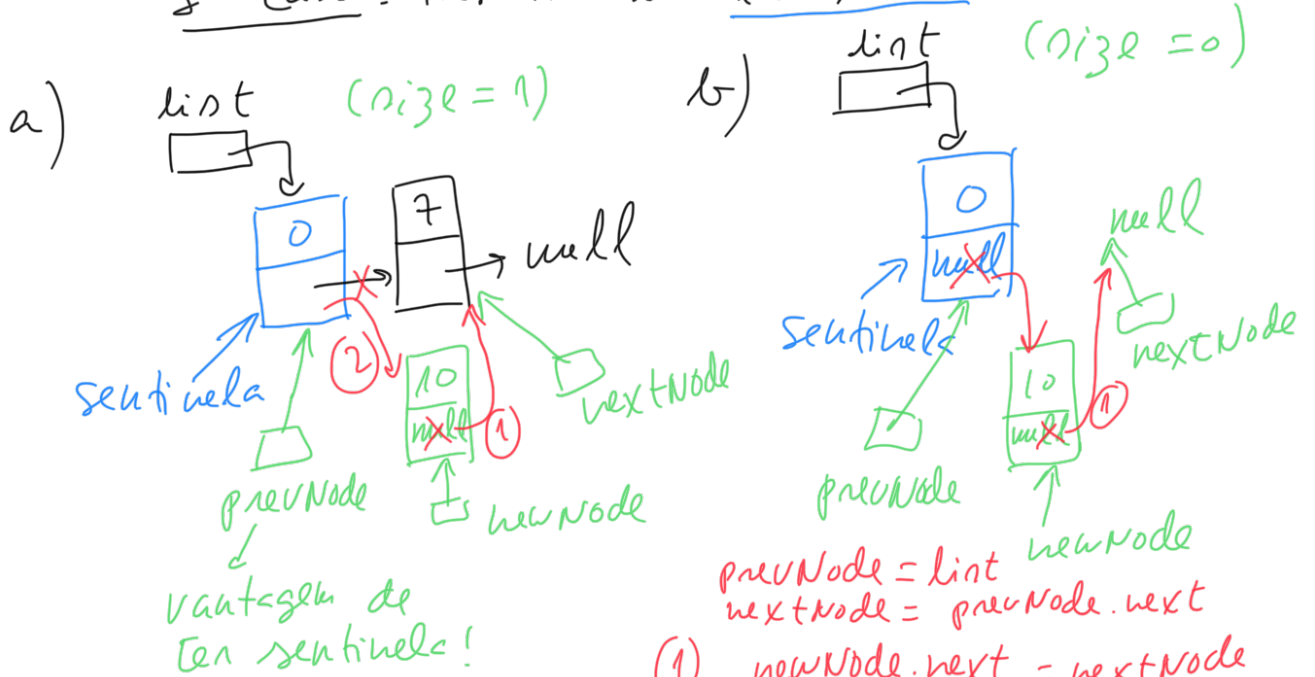 a)
list
(size = 1)
0
7
null
sentinela
2
10
null
1
nextNode
prevNode
newNode
vantagem de
ter sentinela!
b)
list
(size = 0)
0
null
null
sentinela
nextNode
10
null
1
prevNode
newNode
prevNode = list
nextNode = prevNode.next
(1) newNode.next = nextNode